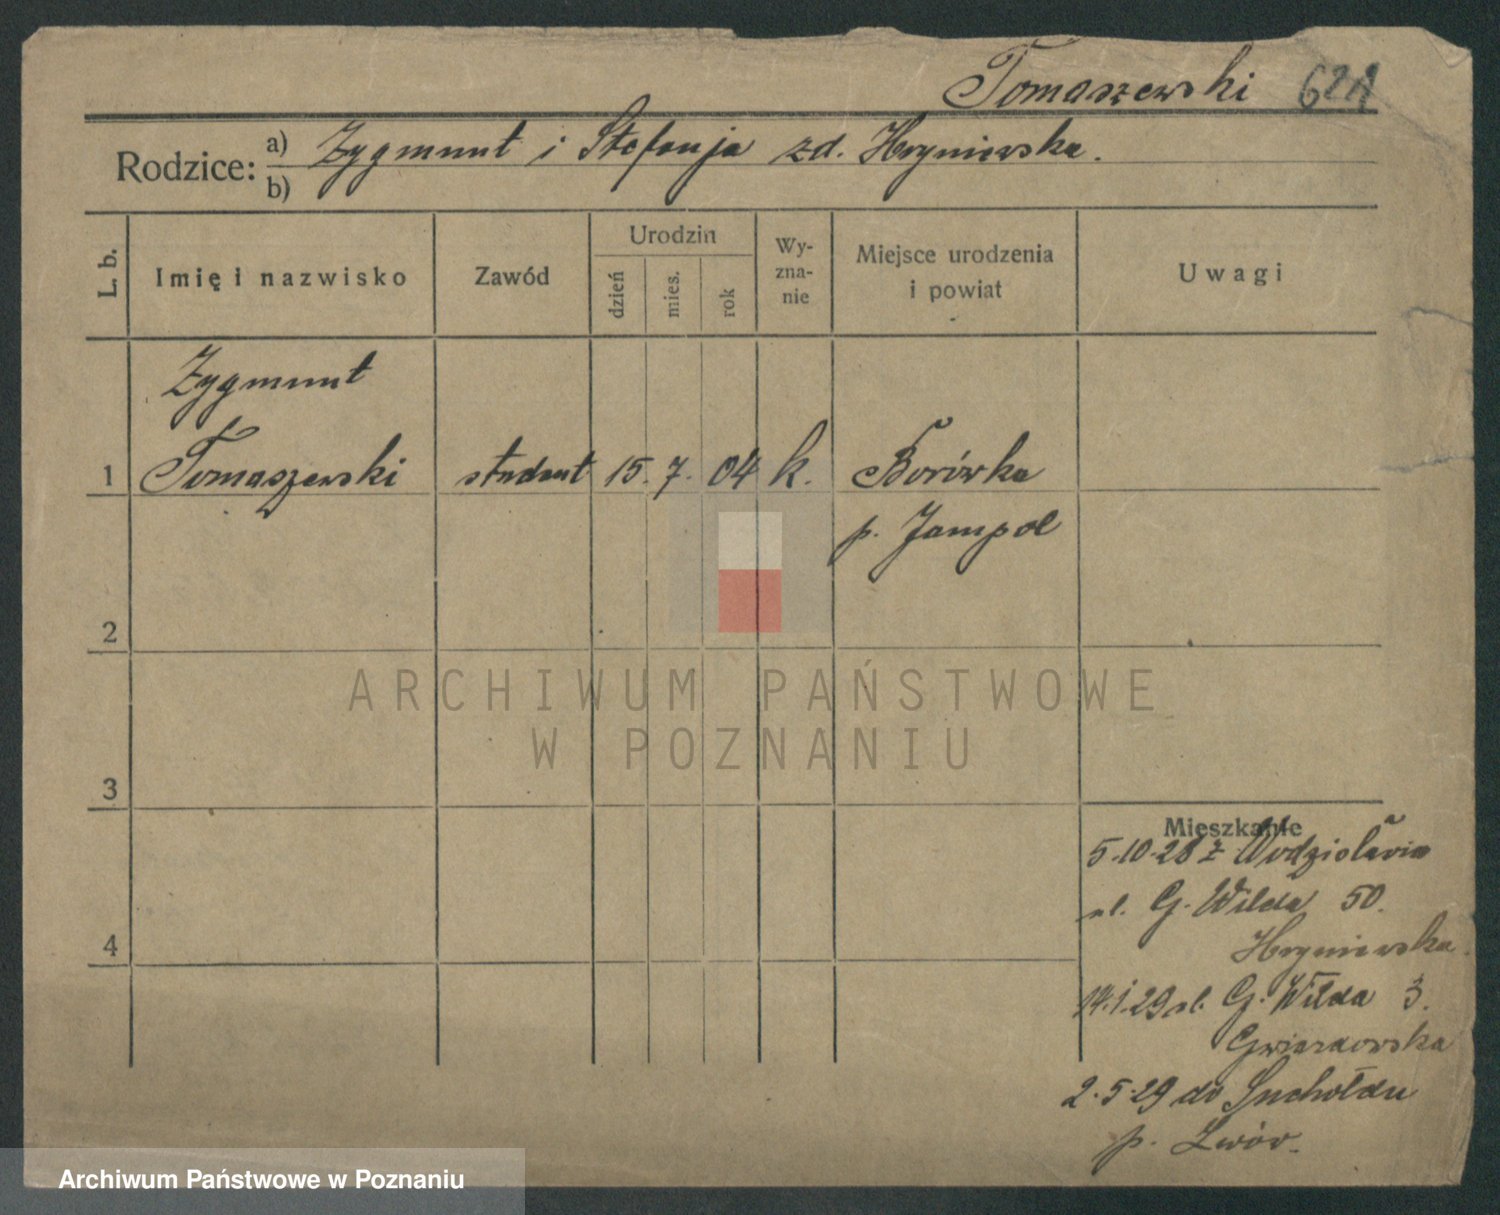 Tomaszewski
Rodzice: a) Zygmunt i Stefanja zd. Hryniewska.
b)
L. b.
Imię i nazwisko
Zawód
Urodzin
dzień
mies.
rok
Wy-
zna-
nie
Miejsce urodzenia
i powiat
Uwagi
Zygmunt
1 Tomaszewski student 15. 7. 04 k. Borówka
p. Jampol
2
3
4
Mieszkanie
5.10.28 z Wodzisławia
ul. G. Wilda 50.
Hryniewska.
14.1.29 ul. G. Wilda 3.
2.5.29 do
p. Lwów.
ARCHIWUM PAŃSTWOWE
W POZNANIU
Archiwum Państwowe w Poznaniu